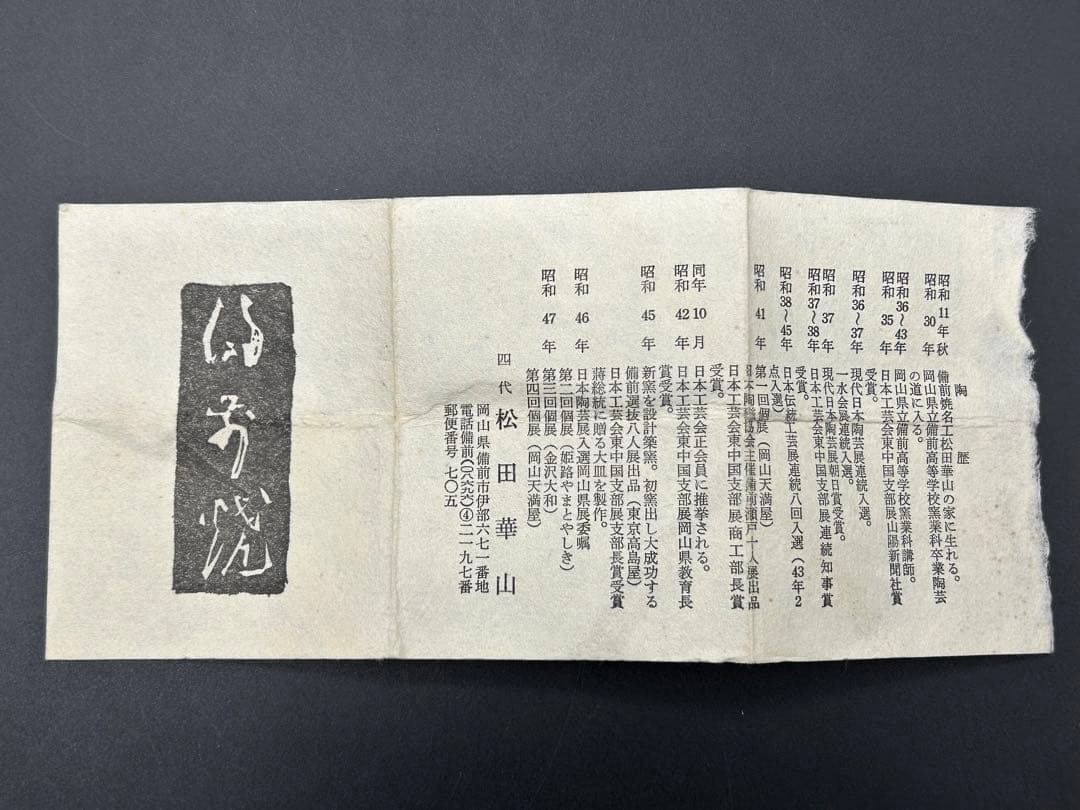 陶歴
昭和11年秋 備前焼名工松田華山の家に生れる。
昭和 30 年 岡山県立備前高等学校窯業科卒業陶芸
の道に入る。
昭和36～43年 岡山県立備前高等学校窯業科講師。
昭和 35 年 日本工芸会東中国支部展山陽新聞社賞
受賞。
昭和36～37年 現代日本陶芸展連続入選。
一水会展連続入選。
昭和 37 年 現代日本陶芸展朝日賞受賞。
昭和37～38年 日本工芸会東中国支部展連続知事賞
受賞。
昭和38～45年 日本伝統工芸展連続八回入選（43年2
点入選）
昭和 41 年 第一回個展（岡山天満屋）
日本陶磁協会主催備前瀬戸一人展出品
日本工芸会東中国支部展商工部長賞
受賞。
同年 10 月 日本工芸会正会員に推挙される。
昭和 42 年 日本工芸会東中国支部展岡山県教育長
賞受賞。
昭和 45 年 新窯を設計築窯。初窯出し大成功する
備前選抜八人展出品（東京高島屋）
日本工芸会東中国支部展支部長賞受賞
蔣総統に贈る大皿を製作。
昭和 46 年 日本陶芸展入選岡山県展委嘱
第二回個展（姫路やまとやしき）
昭和 47 年 第三回個展（金沢大和）
第四回個展（岡山天満屋）
四代 松田華山
岡山県備前市伊部六七一番地
電話備前(〇八六九六)④二一九七番
郵便番号 七〇五
備前焼